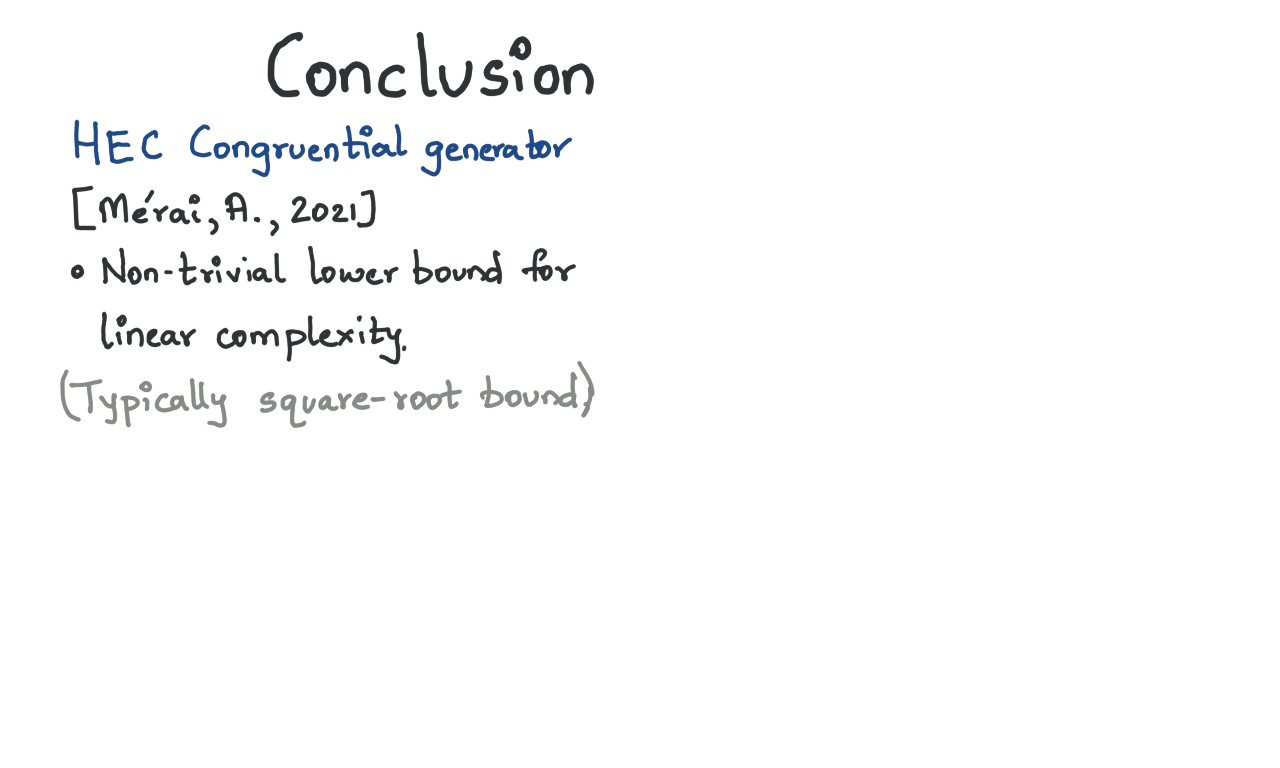 Conclusion
HEC Congruential generator
[Mérai, A., 2021]
• Non-trivial lower bound for
linear complexity.
(Typically square-root bound)